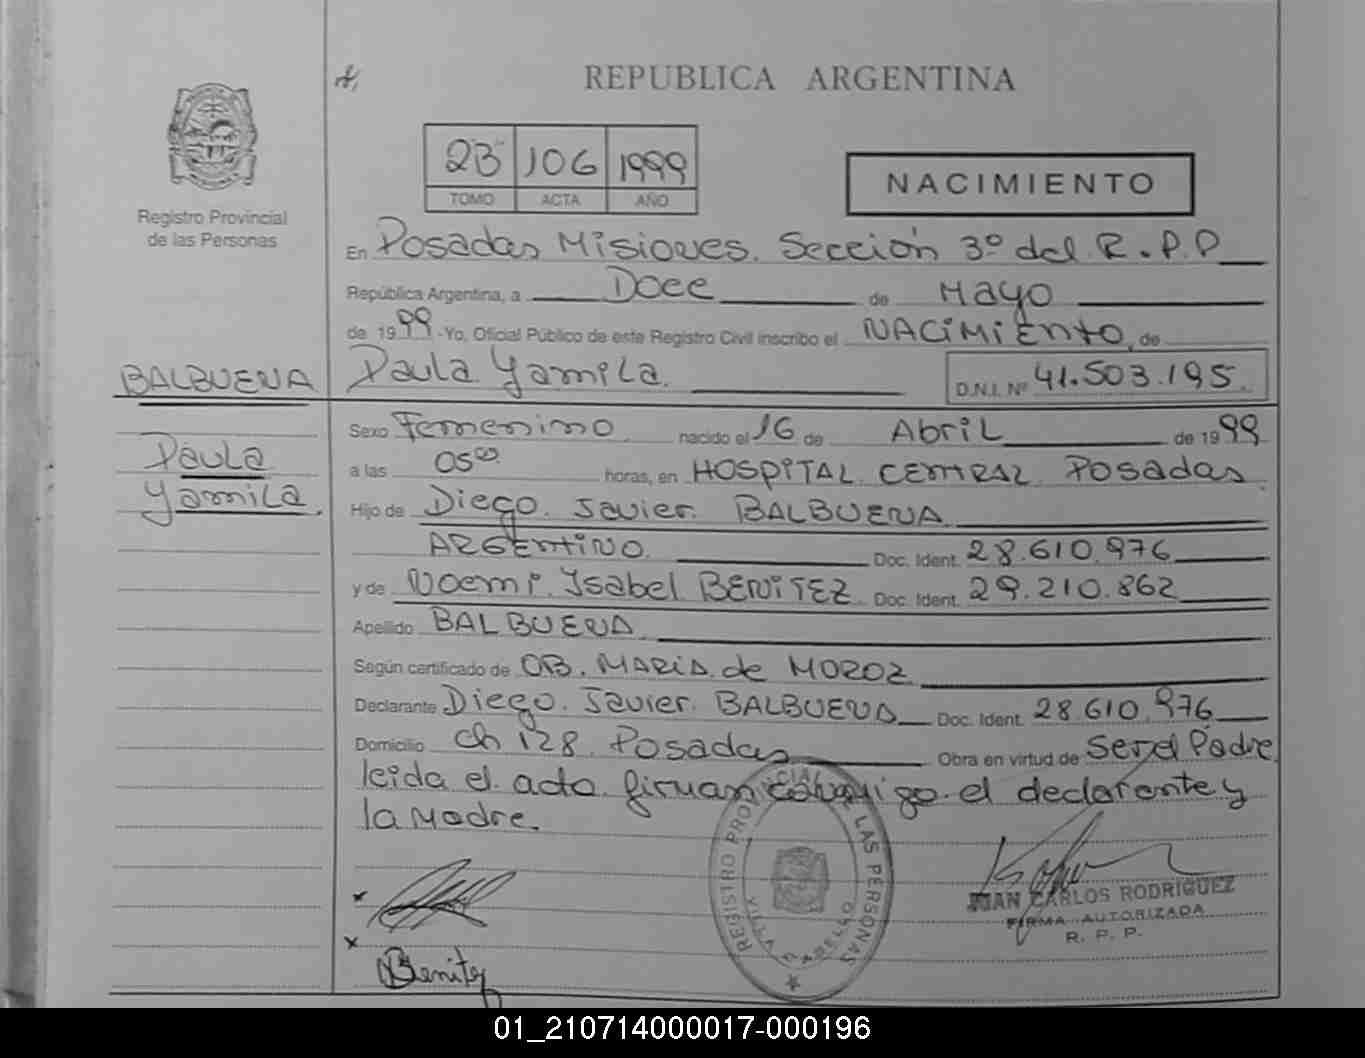 REPUBLICA ARGENTINA
23 106 1999
TOMO ACTA AÑO
NACIMIENTO
Registro Provincial
de las Personas
En Posadas Misiones. Sección 3º del R.P.P
República Argentina, a Doce de Mayo
de 1999 -Yo, Oficial Público de este Registro Civil inscribo el NACIMIENTO de
BALBUENA
Paula Yamila. D.N.I. Nº 41.503.195.
Paula
Yamila.
Sexo Femenino nacido el 16 de Abril de 1999
a las 05⁰⁰. horas, en HOSPITAL CENTRAL Posadas.
Hijo de Diego Javier BALBUENA
ARGENTINO. Doc. Ident. 28.610.976
y de Noemi Ysabel BENITEZ Doc. Ident. 29.210.862
Apellido BALBUENA
Según certificado de OB. MARIA de MOROZ
Declarante Diego Javier BALBUENA Doc. Ident. 28.610.976
Domicilio Ch 128 Posadas Obra en virtud de Ser el Padre
leida el acta firman conmigo el declarante y
la Madre.
REGISTRO PROVINCIAL DE LAS PERSONAS
JUAN CARLOS RODRIGUEZ
FIRMA AUTORIZADA
R. P. P.
Benitez
01_210714000017-000196